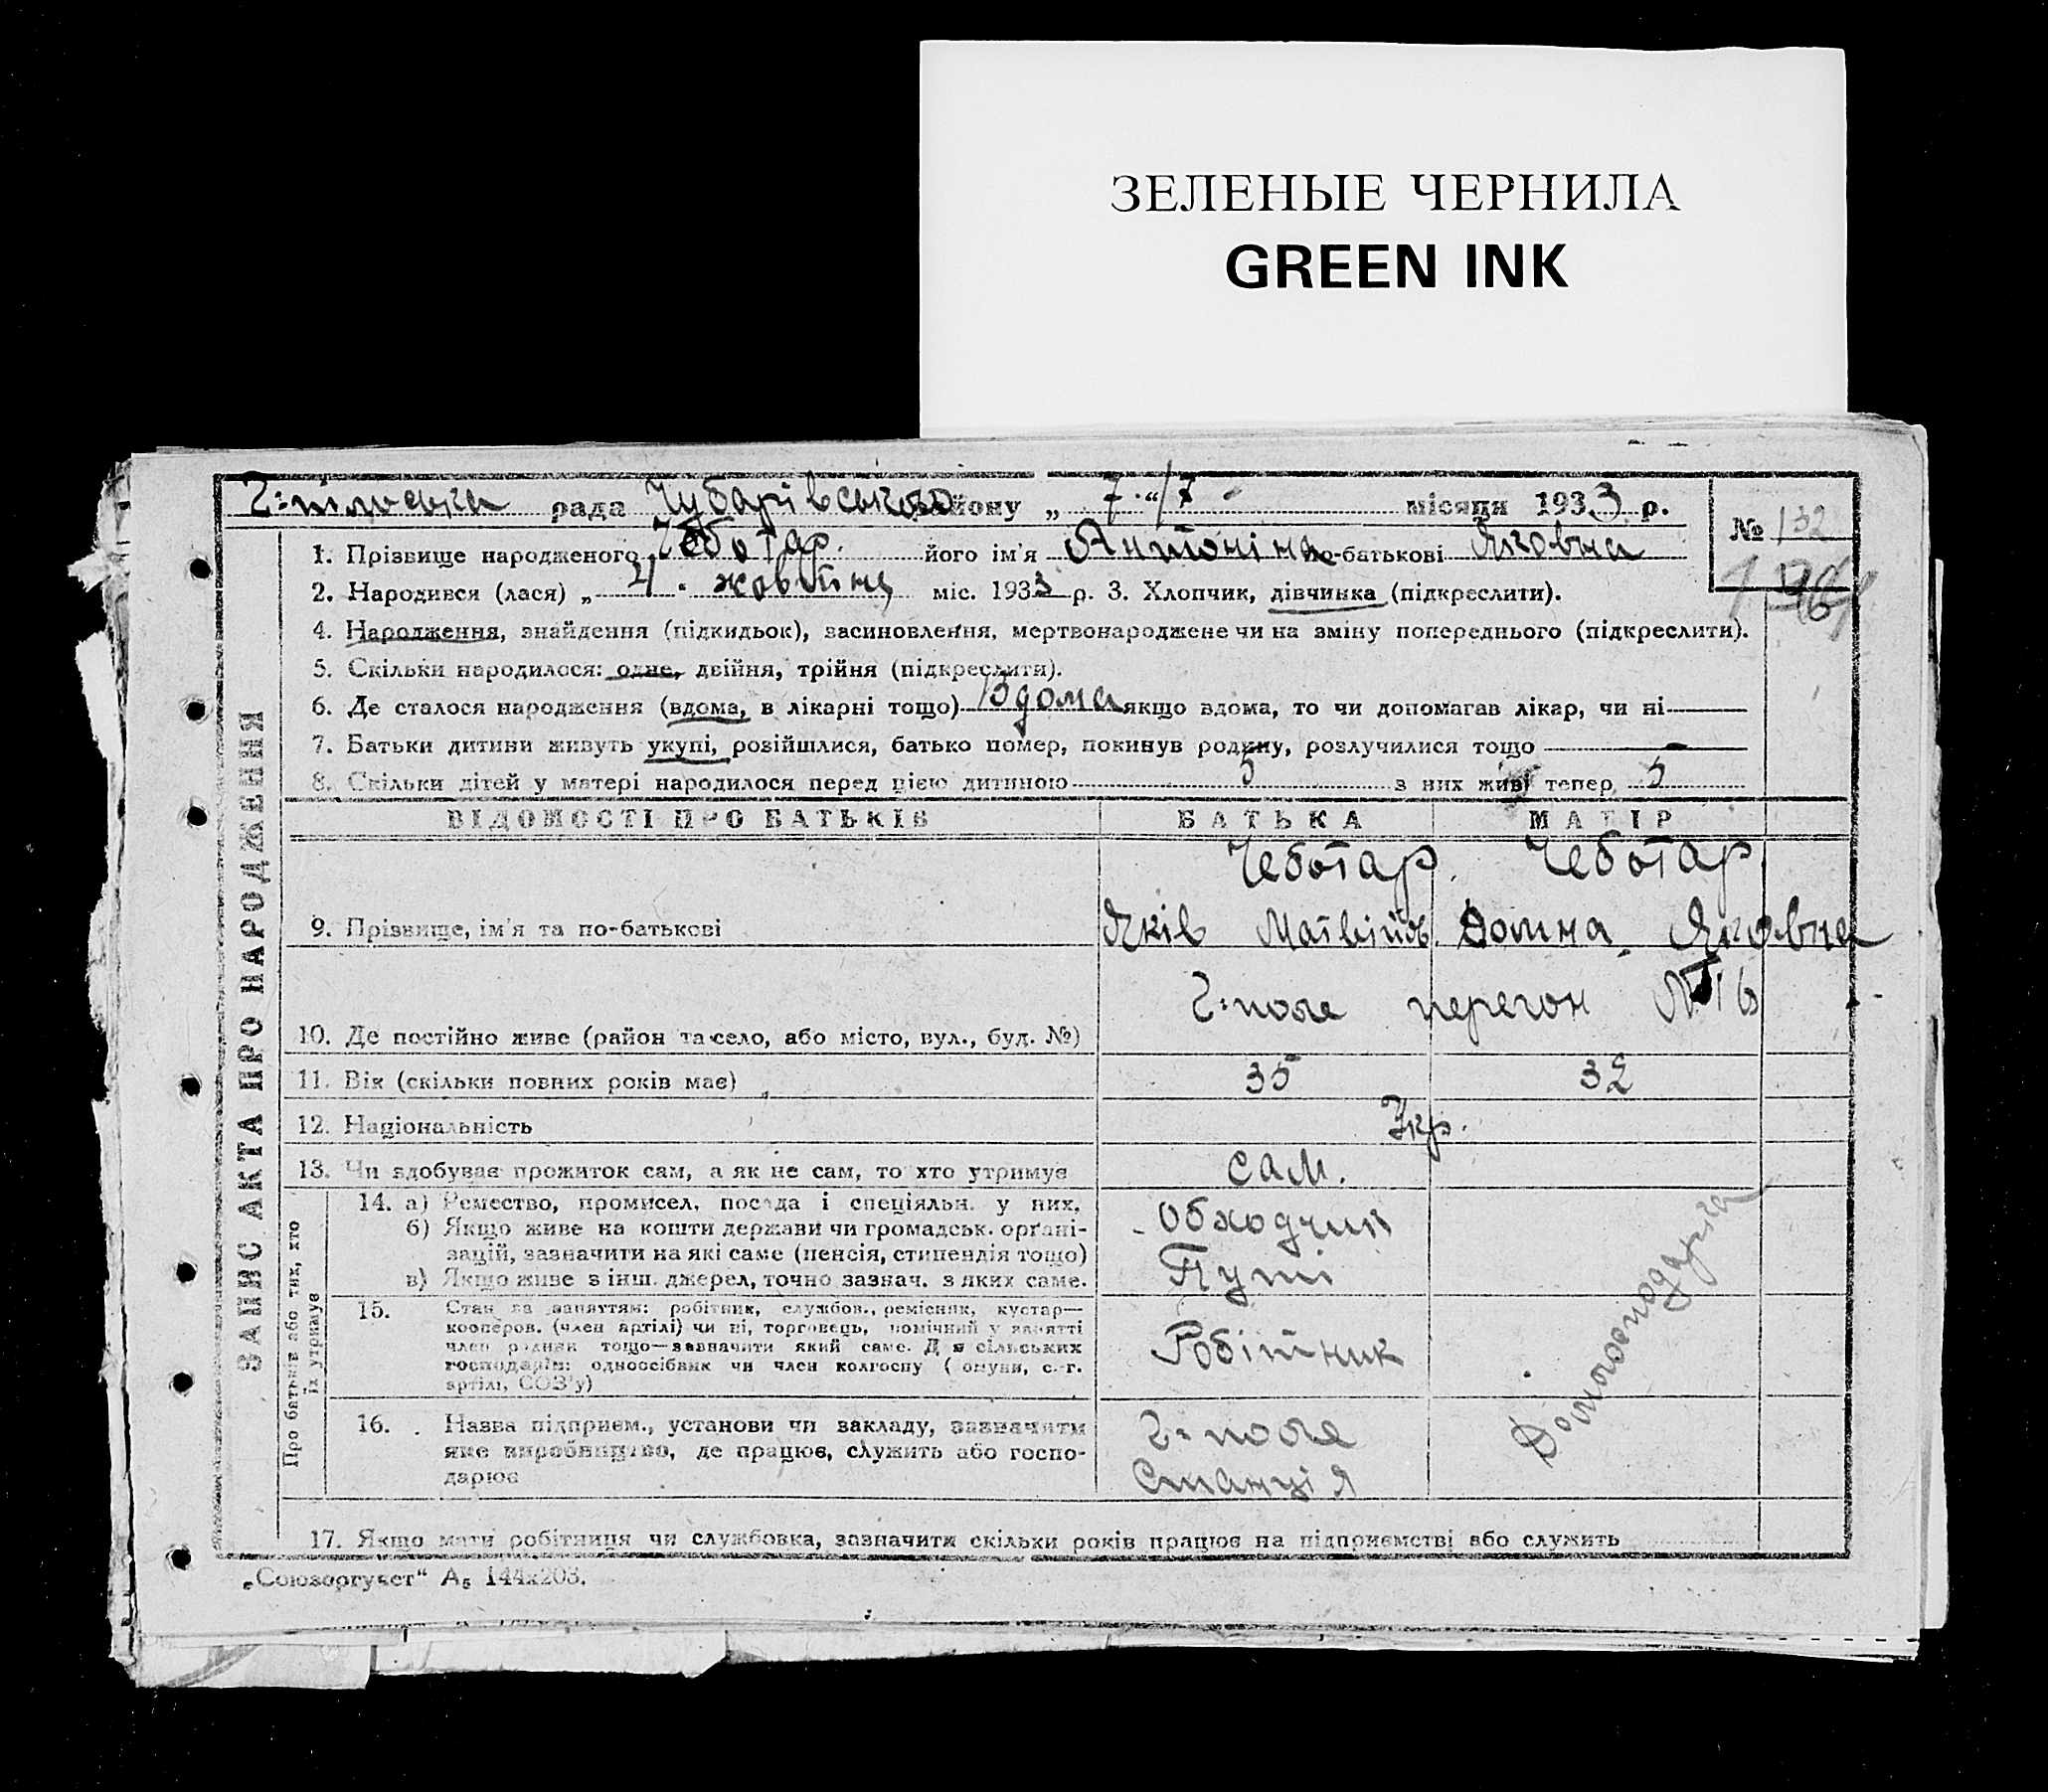 ЗЕЛЕНЫЕ ЧЕРНИЛА
GREEN INK
Г=пільська рада Чубарівського району „ 7 “ місяця 1933 р.
№ 132
1. Прізвище народженого Чеботар. його ім'я Антоніна по-батькові Яковна
2. Народився (лася) „ 4 жовтня міс. 1933 р. 3. Хлопчик, дівчинка (підкреслити).
4. Народження, знайдення (підкидьок), засиновлення, мертвонароджене чи на зміну попереднього (підкреслити).
5. Скільки народилося: одне, двійня, трійня (підкреслити).
6. Де сталося народження (вдома, в лікарні тощо) Вдома якщо вдома, то чи допомагав лікар, чи ні
7. Батьки дитини живуть укупі, розійшлися, батько помер, покинув родину, розлучилися тощо —
8. Скільки дітей у матері народилося перед цією дитиною 5 з них живі тепер 5
ЗАПИС АКТА ПРО НАРОДЖЕННЯ
ВІДОМОСТІ ПРО БАТЬКІВ БАТЬКА МАТІР
Чеботар. Чеботар
9. Прізвище, ім'я та по-батькові Яків Матвійов. Домна Яковна
Г=поле перегон № 16
10. Де постійно живе (район та село, або місто, вул., буд. №)
11. Вік (скільки повних років має) 35 32
12. Національність Укр.
13. Чи здобуває прожиток сам, а як не сам, то хто утримує сам.
Про батьків або тих, хто їх утримує
14. а) Ремество, промисел, посада і спеціяльн. у них, Обходчик
б) Якщо живе на кошти держави чи громадськ. органі-
зацій, зазначити на які саме (пенсія, стипендія тощо) Путі
в) Якщо живе з інш. джерел, точно зазнач. з яких саме.
15. Стан за заняттям: робітник, службов., ремісник, кустар—
кооперов. (член артілі) чи ні, торговець, помічний у занятті
член родини тощо—зазначити який саме. Для сільських Робітник
господарів: одноосібник чи член колгоспу (комуни, с.-г.
артілі, СОЗ'у)
Домогосподарка
16. Назва підприєм., установи чи закладу, зазначити Г=поле
яке виробництво, де працює, служить або госпо-
дарює Станція
17. Якщо мати робітниця чи службовка, зазначити скільки років працює на підприємстві або служить
„Союзоргучет“ А5 144х203.